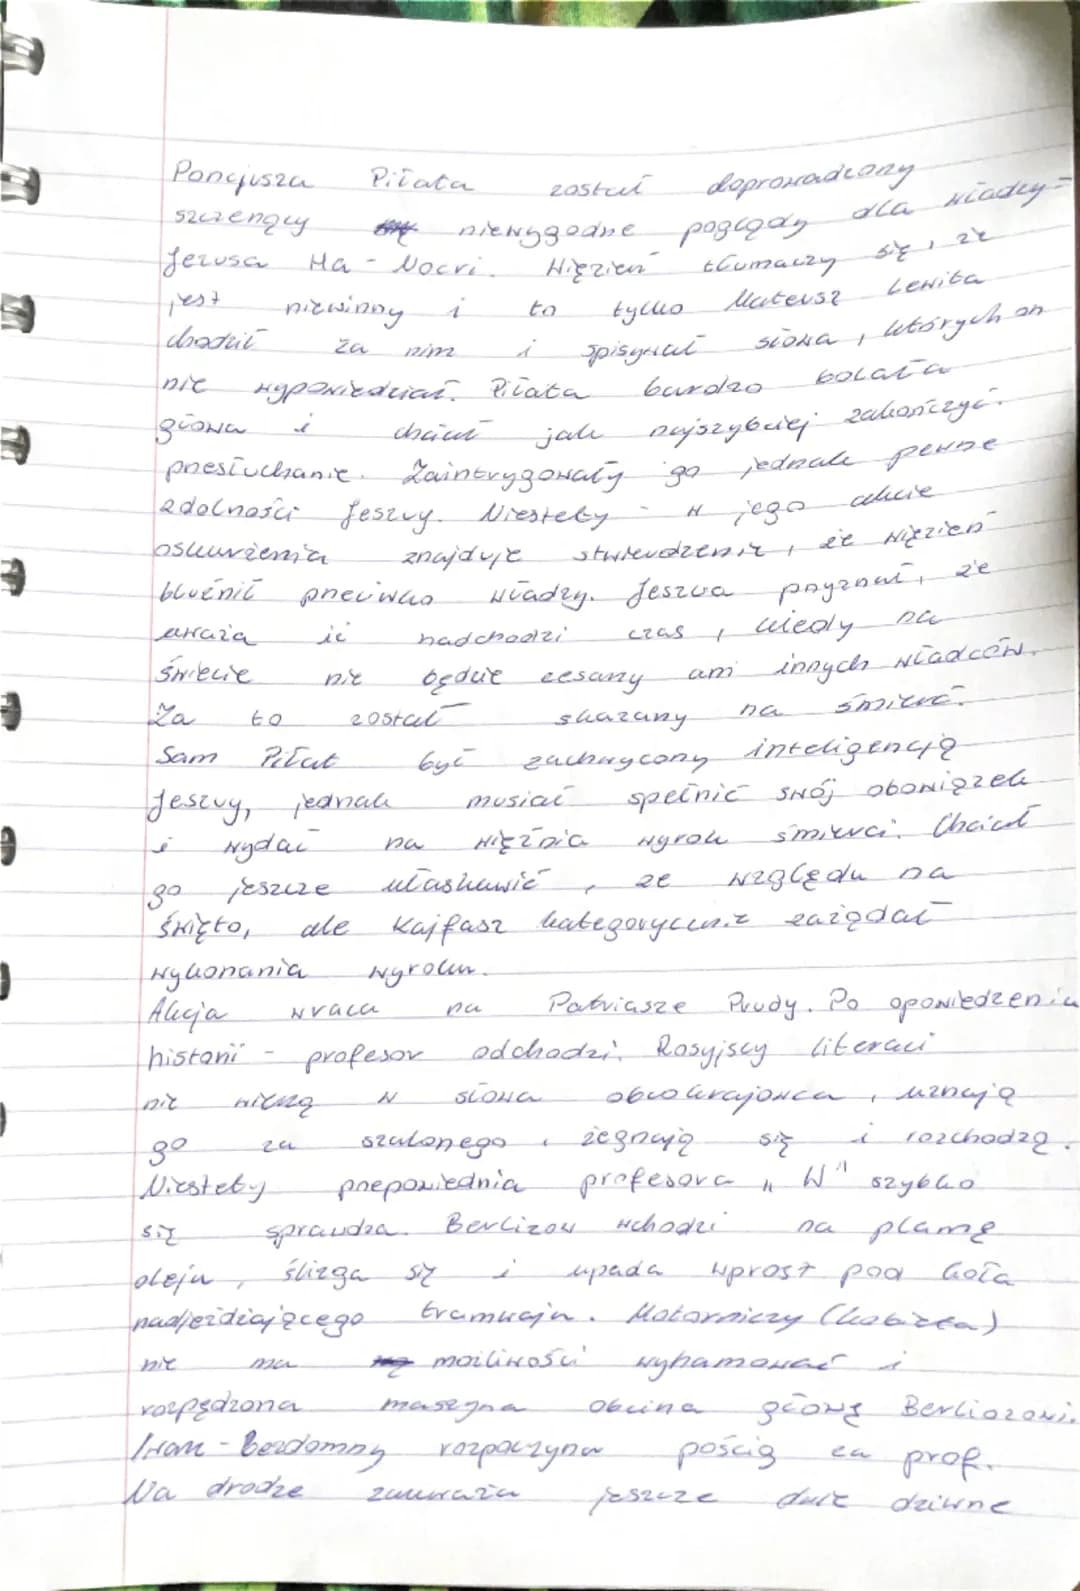 Poncjusza Piłata został doprowadzony
szerzący niewygodne poglądy dla władzy -
Jezusa Ha - Nocri. Więzień tłumaczy się, że
jest niewinny i to tylko Mateusz Lewita
chodził za nim i spisywał słowa, których on
nie wypowiedział. Piłata bardzo bolała
głowa i chciał jak najszybciej zakończyć
przesłuchanie. Zaintrygowały go jednak pewne
zdolności Jeszuy. Niestety - w jego akcie
oskarżenia znajduje stwierdzenie, że więzień
bluźnił przeciwko władzy. Jeszua przyznał, że
uważa iż nadchodzi czas, kiedy na
świecie nie będzie cesarzy ani innych władców.
Za to został skazany na śmierć.
Sam Piłat był zachwycony inteligencją
Jeszuy, jednak musiał spełnić swój obowiązek
i wydać na więźnia wyrok śmierci. Chciał
go jeszcze ułaskawić, ze względu na
święto, ale Kajfasz kategorycznie zażądał
wykonania wyroku.
Akcja wraca na Patriasze Prudy. Po opowiedzeniu
historii - profesor odchodzi. Rosyjscy literaci
nie wierzą w słowa obcokrajowca, uznają
go za szalonego, żegnają się i rozchodzą.
Niestety przepowiednia profesora „W" szybko
się sprawdza. Berlizow wchodzi na plamę
oleju, ślizga się i upada wprost pod koła
nadjeżdżającego tramwaju. Motorniczy (kobieta)
nie ma możliwości wyhamować i
rozpędzona maszyna obcina głowę Berliozowi.
Iwan - Bezdomny rozpoczyna pościg za prof.
Na drodze zauważa jeszcze dwie dziwne